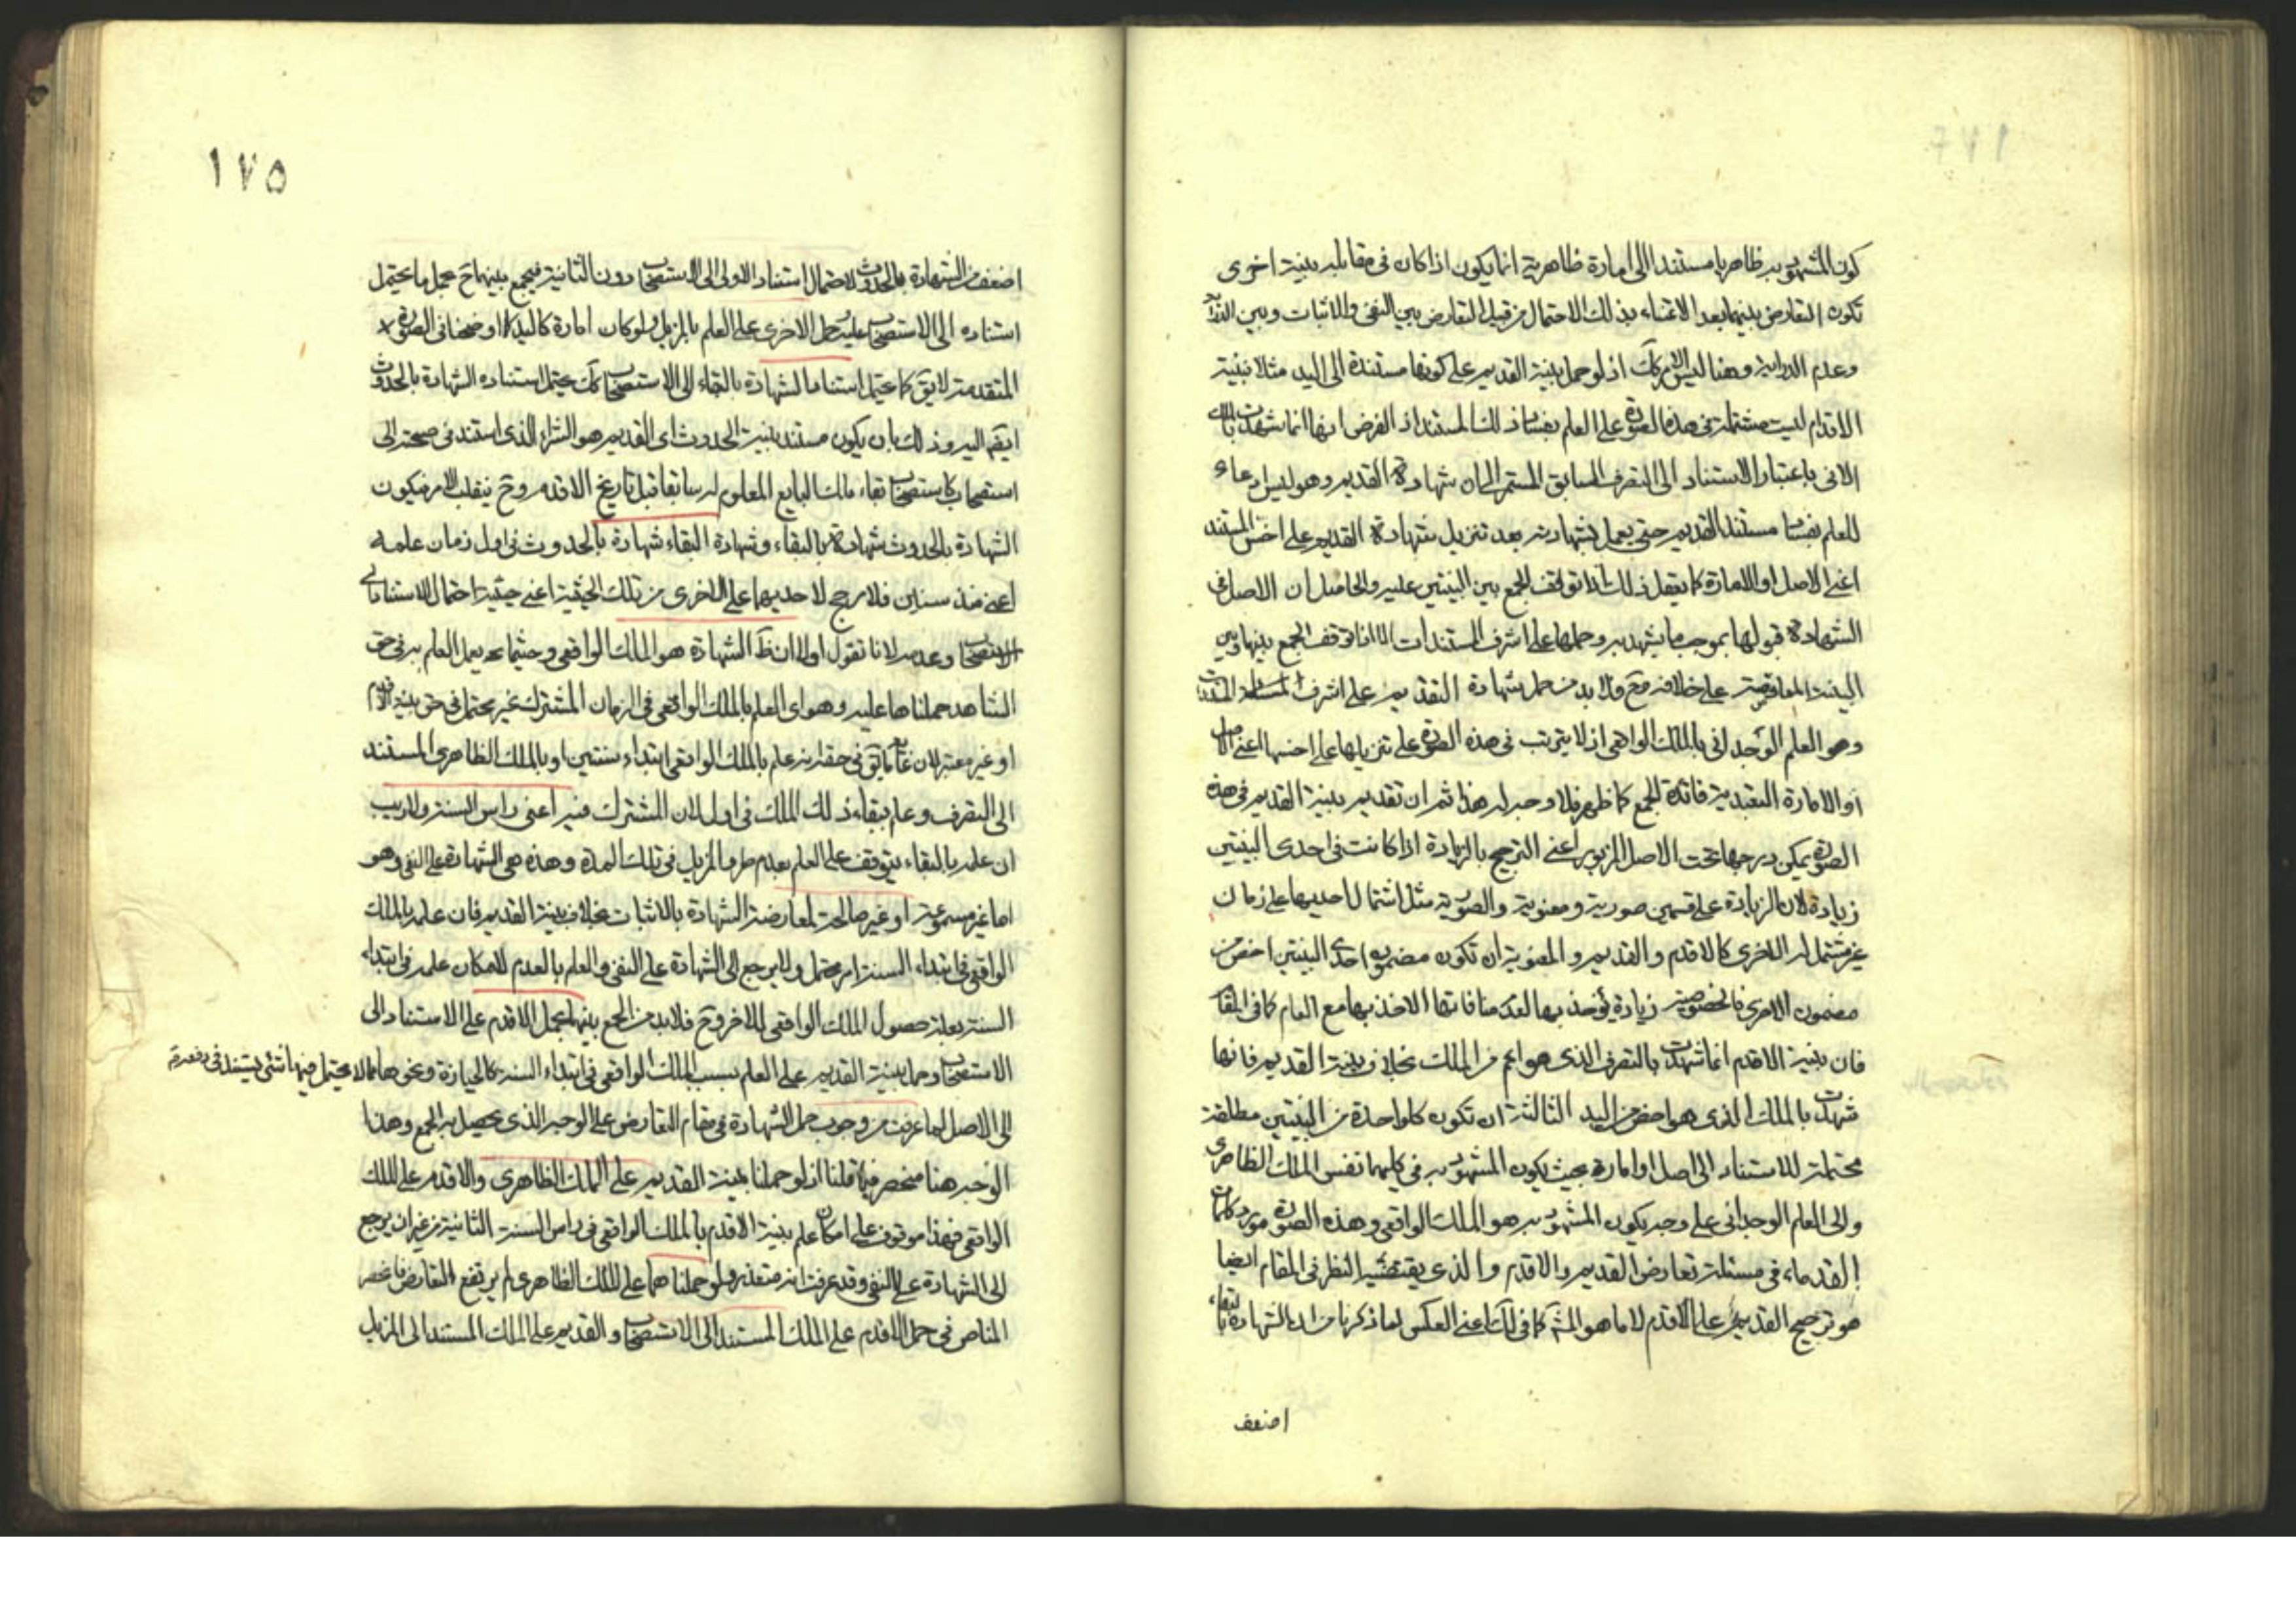 كون المشهود به ظاهريا مستندا الى امارة ظاهرية انما يكون اذا كان فى مقابله بينة اخرى
تكون التعارض بينهما بعد الاعتناء بذلك الاحتمال من قبيل التعارض بين النفى والاثبات وبين
وعدم الدراية وهنا ليس الامر كك اذ لو حمل بينة القديم على كونها مستندة الى اليد مثلا فبينة
الاقدم ليست مشتملة فى هذه الصورة على العلم بفساد ذلك المستند اذ الفرض انها انما شهدت بالملك
الانى باعتبار الاستناد الى التصرف السابق المستمر الى ان شهادة القديم وهو ليس ادعاء
للعلم بفساد مستند القديم حتى يعمل بشهادته بعد تنزيل شهادة القديم على اخس المستند
اعنى الاصل او الامارة كما يفعل ذلك اذا توقف الجمع بين البينتين عليه والحاصل ان الاصل فى
الشهادة قبولها بموجب ما يشهد به وحملها على اشرف المستندات الا اذا توقف الجمع بينها وبين
البينة المعارضة على خلافه وح فلا بد من حمل شهادة القديم على اشرف المستندات
وهو العلم الوجدانى بالملك الواقعى اذ لا يترتب فى هذه الصورة على تنزيلها على اخسها اعنى الاصل
او الامارة التعبدية فائدة للجمع كما ظهر فلا وجه له هذا ثم ان تقديم بينة القديم فى هذه
الصورة يمكن درجها تحت الاصل المزبور اعنى الترجيح بالزيادة اذا كانت فى احدى البينتين
زيادة لان الزيادة على قسمين صورية ومعنوية والصورية مثل اشتمال احديهما على زمان
غير مشتمل له الاخرى كالاقدم والقديم والمعنوية ان تكون مضمون احدى البينتين اخص من
مضمون الاخرى فالخصوصية زيادة يؤخذ بها لعدم منافاتها الاخذ بها مع العام كما فى المقام
فان بينة الاقدم انما شهدت بالتصرف الذى هو اعم من الملك بخلاف بينة القديم فانها
شهدت بالملك الذى هو اخص من اليد الثالثة ان تكون كل واحدة من البينتين مطلقة
محتملة للاستناد الى اصل او امارة بحيث يكون المشهود به فى كليهما نفس الملك الظاهرى
والى العلم الوجدانى على وجه يكون المشهود به هو الملك الواقعى وهذه الصورة مورد كلمات
القدماء فى مسئلة تعارض القديم والاقدم والذى يقتضيه النظر فى المقام ايضا
هو ترجيح القديم على الاقدم لا ما هو المش كما فى لك اعنى العكس لما ذكرنا من ان الشهادة بالبقاء
اضعف
١٧٥
اضعف من الشهادة بالحدوث لاحتمال استناد الاولى الى الاستصحاب دون الثانية فيجمع بينهما ح بحمل ما يحتمل
استناده الى الاستصحاب عليه وحمل الاخرى على العلم بالمزيل ولو كان امارة كاليد كما اوضحنا فى الصورة
المتقدمة لا يق كما يحتمل استناد الشهادة بالبقاء الى الاستصحاب كك يحتمل استناد الشهادة بالحدوث
ايضا اليه وذلك بان يكون مستند بينة الحدوث اى القديم هو الشراء الذى استند فى صحته الى
استصحاب كاستصحاب بقاء مالك البايع المعلوم له سابقا قبل تاريخ الاقدم وح ينقلب الامر فيكون
الشهادة بالحدوث شهادة بالبقاء وشهادة البقاء شهادة بالحدوث فى اول زمان علمه
اعنى منذ سنين فلا مرجح لاحديهما على الاخرى من تلك الحيثية اعنى حيثية احتمال الاستناد الى
الاستصحاب وعدمه لانا نقول اولا ان ظ الشهادة هو الملك الواقعى وحيثما يحتمل العلم به فى حق
الشاهد حملناها عليه وهو اى العلم بالملك الواقعى فى الزمان المشترك غير محتمل فى حق بينة الاقدم
او غير معتبر لان غاية ما يق فى حقه انه علم بالملك الواقعى ابتداء سنتين او بالملك الظاهرى المستند
الى التصرف وعلم ببقاء ذلك الملك فى اول الان المشترك فيه اعنى راس السنة ولا ريب
ان علمه بالبقاء يتوقف على العلم بعدم طرو المزيل فى تلك المدة وهذه هى الشهادة على النفى وهو
اما غير مسموعة او غير صالحة لمعارضة الشهادة بالاثبات بخلاف بينة القديم فان علمه بالملك
الواقعى فى ابتداء السنة امر محتمل ولا يرجع الى الشهادة على النفى والعلم بالعدم لامكان علمه فى ابتداء
السنة بعلة حصول الملك الواقعى للاخر وح فلا بد من الجمع بينهما بحمل الاقدم على الاستناد الى
الاستصحاب وحمل بينة القديم على العلم بسبب الملك الواقعى فى ابتداء السنة كالحيازة ونحوها مما لا يحتمل فيها شئ يستند فى دفعه
الى الاصل لما عرفت من وجوب حمل الشهادة فى مقام التعارض على الوجه الذى يحصل به الجمع وهذا
الوجه هنا منحصر فيما قلنا اذ لو حملنا بينة القديم على الملك الظاهرى والاقدم على الملك
الواقعى فهذا موقوف على امكان علم بينة الاقدم بالملك الواقعى فى راس السنة الثانية من غير ان يرجع
الى الشهادة على النفى وقد عرفت انه متعذر ولو حملناهما على الملك الظاهرى لم يرتفع التعارض فانحصر
المناص فى حمل الاقدم على الملك المستند الى الاستصحاب والقديم على الملك المستند الى المزيل